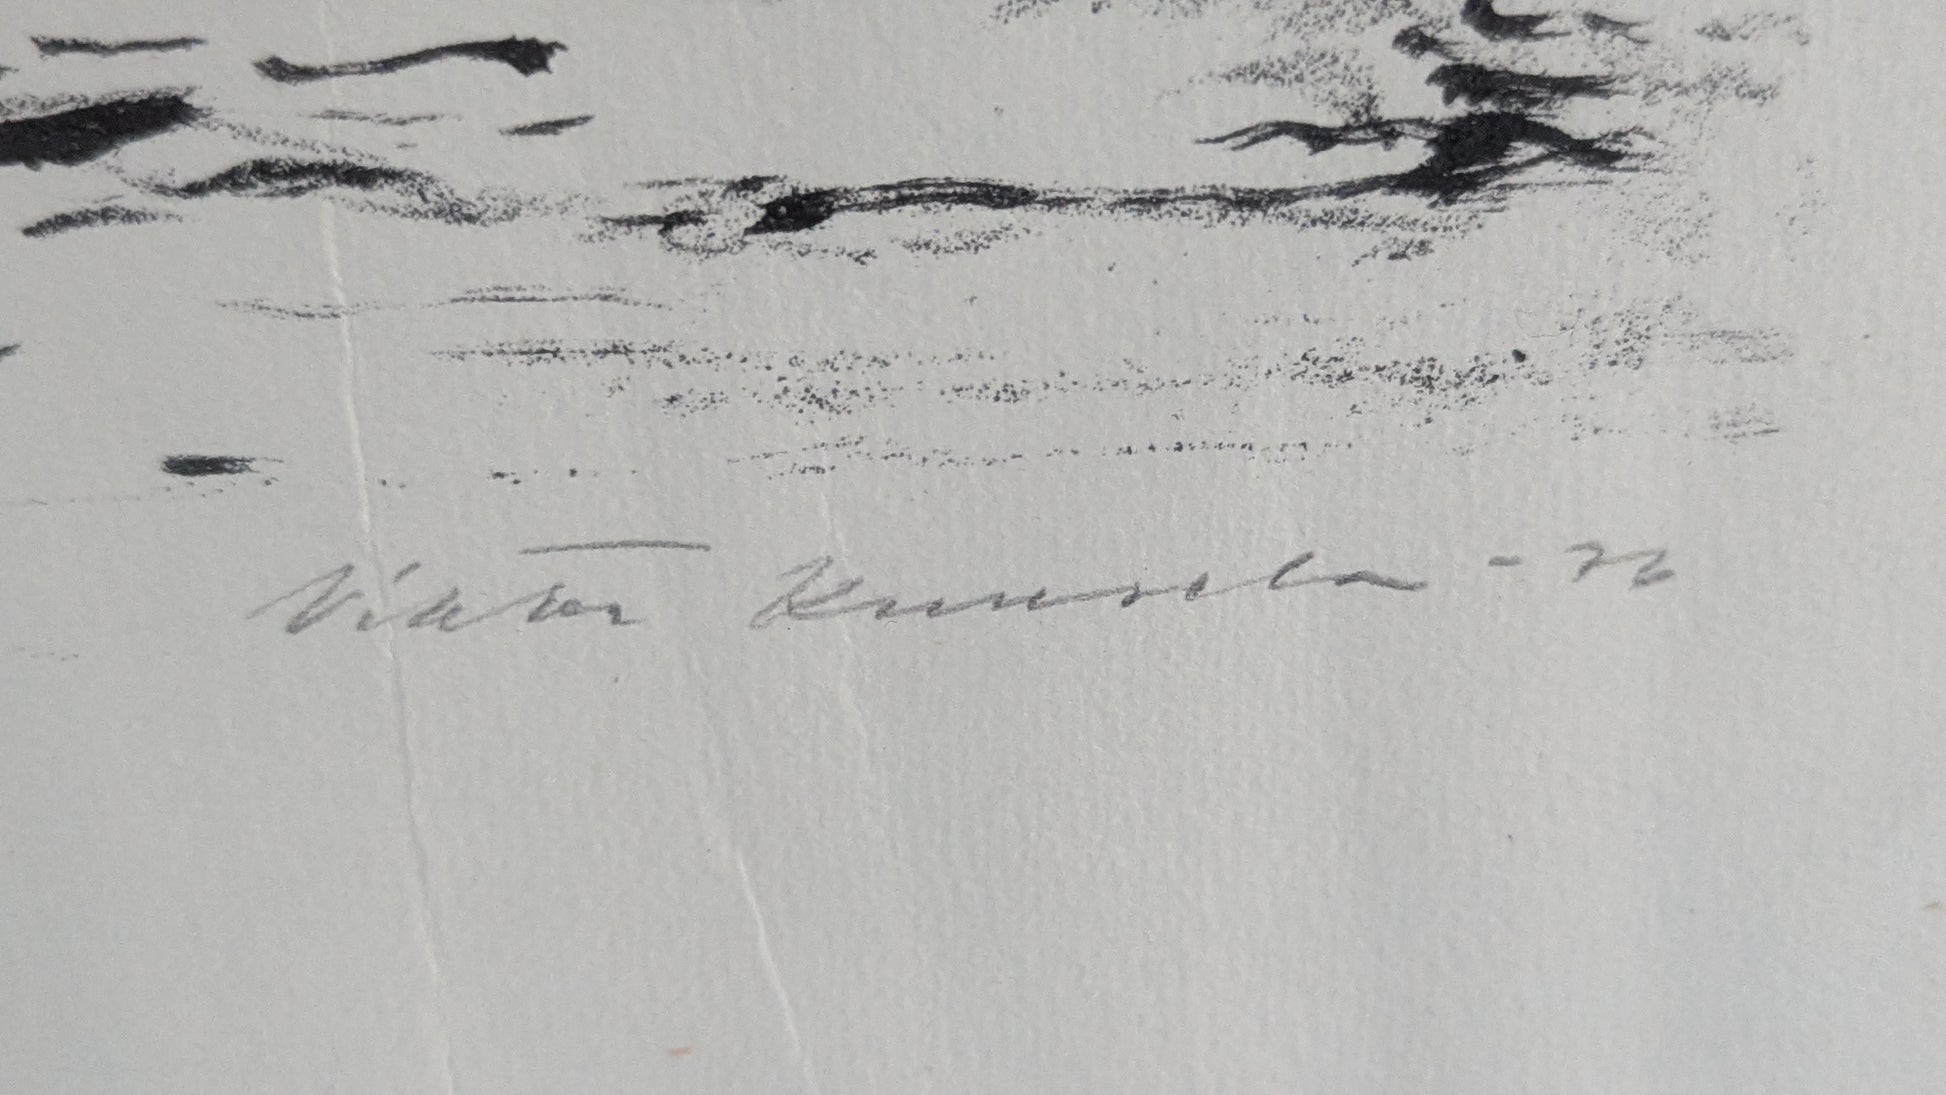 Viktor Kuusela - 76